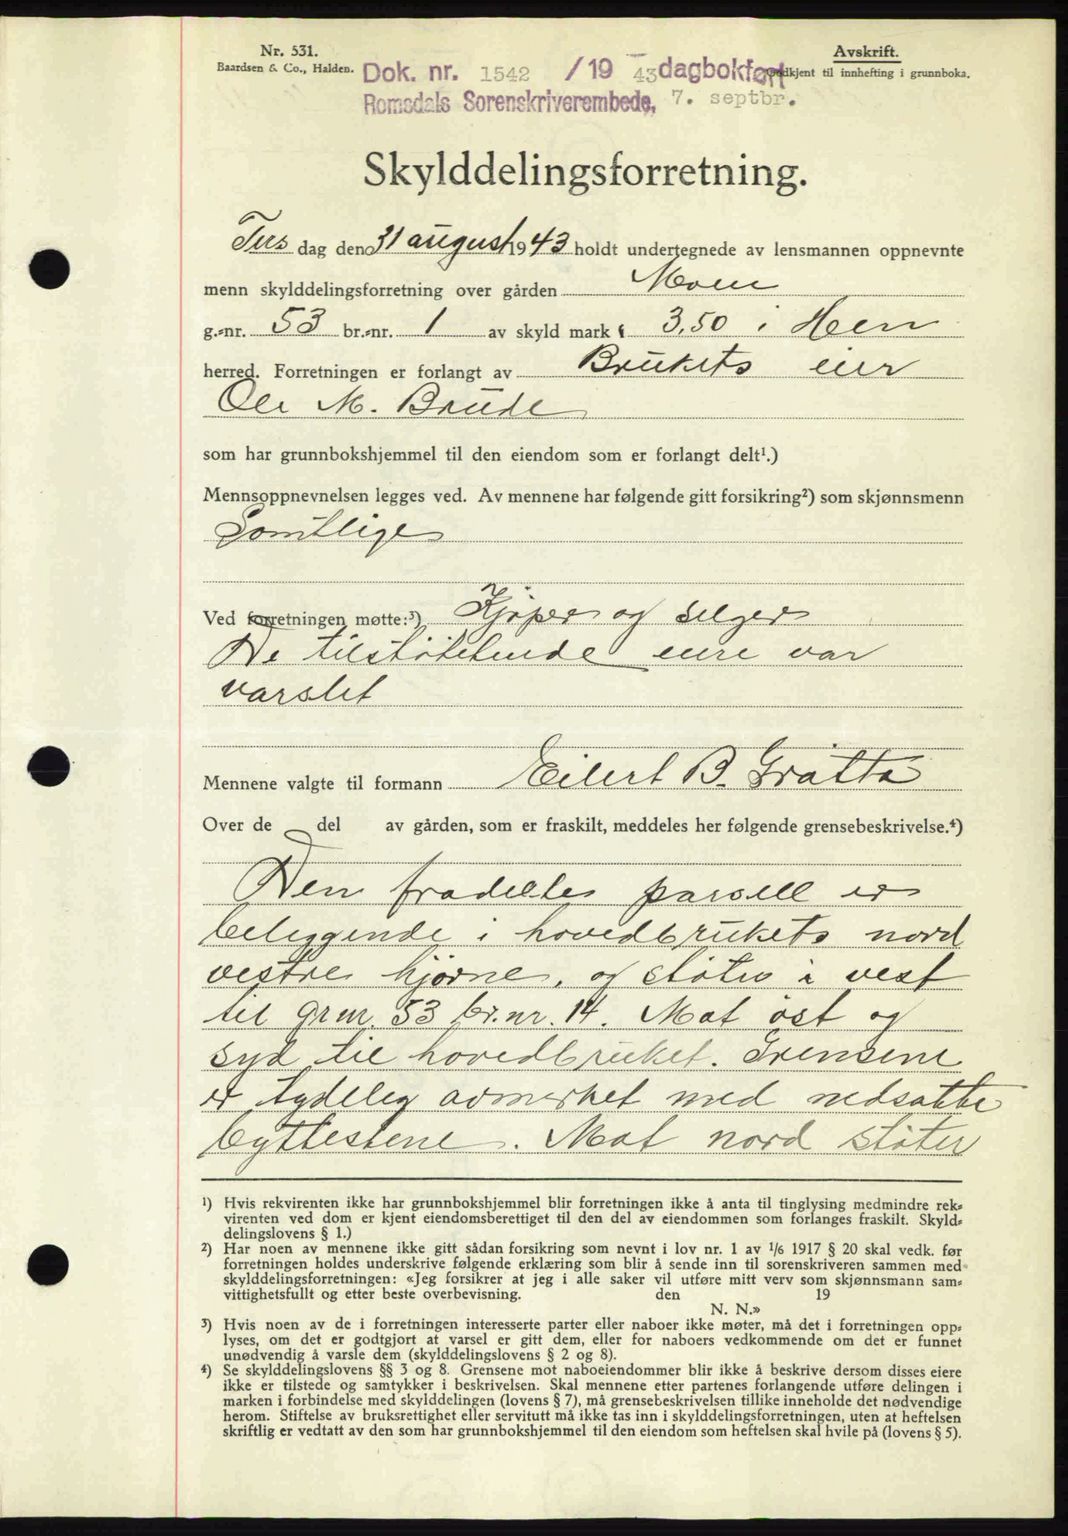 Nr. 531.
Baardsen & Co., Halden.
Avskrift.
Godkjent til innhefting i grunnboka.
Dok. nr. 1542 /19 43 dagbokført
Romsdals Sorenskriverembede, 7. septbr.
Skylddelingsforretning.
Tirsdag den 31 august 1943 holdt undertegnede av lensmannen oppnevnte
menn skylddelingsforretning over gården Moen
g.-nr. 53 br.-nr. 1 av skyld mark 3,50 i Hen
herred. Forretningen er forlangt av Brukets eier
Ole M. Brude
som har grunnbokshjemmel til den eiendom som er forlangt delt¹.)
Mennsoppnevnelsen legges ved. Av mennene har følgende gitt forsikring²) som skjønnsmenn
Samtlige
Ved forretningen møtte:³) Kjøper og selger
De tilstøtende eiere var
varslet
Mennene valgte til formann Eilert B. Gråtta
Over de del av gården, som er fraskilt, meddeles her følgende grensebeskrivelse.⁴)
Den fradelte parsell er
beliggende i hovedbrukets nord
vestre hjørne, og støter i vest
til grnr. 53 br.nr. 14. Mot øst og
syd til hovedbruket. Grensene
er tydeleg avmerket med nedsatte
byttestene. Mot nord støter
¹) Hvis rekvirenten ikke har grunnbokshjemmel blir forretningen ikke å anta til tinglysing medmindre rek-
virenten ved dom er kjent eiendomsberettiget til den del av eiendommen som forlanges fraskilt. Skyld-
delingslovens § 1.)
²) Har noen av mennene ikke gitt sådan forsikring som nevnt i lov nr. 1 av ¹/₆ 1917 § 20 skal vedk. før
forretningen holdes underskrive følgende erklæring som blir å sende inn til sorenskriveren sammen med
skylddelingsforretningen: «Jeg forsikrer at jeg i alle saker vil utføre mitt verv som skjønnsmann sam-
vittighetsfullt og etter beste overbevisning. den 19
N. N.»
³) Hvis noen av de i forretningen interesserte parter eller naboer ikke møter, må det i forretningen opp-
lyses, om det er godtgjort at varsel er gitt dem, eller for naboers vedkommende om det er funnet
unødvendig å varsle dem (skylddelingslovens § 2 og 8).
⁴) Se skylddelingslovens §§ 3 og 8. Grensene mot naboeiendommer blir ikke å beskrive dersom disses eiere
ikke er tilstede og samtykker i beskrivelsen. Skal mennene etter partenes forlangende utføre delingen i
marken i forbindelse med skylddelingen (lovens § 7), må grensebeskrivelsen tillike inneholde det nødvendige
herom. Stiftelse av bruksrettighet eller servitutt må ikke tas inn i skylddelingsforretningen, uten at heftelsen
skriftlig er vedtatt av den som har grunnbokshjemmel til den eiendom som heftelsen skal hvile på (lovens § 5).